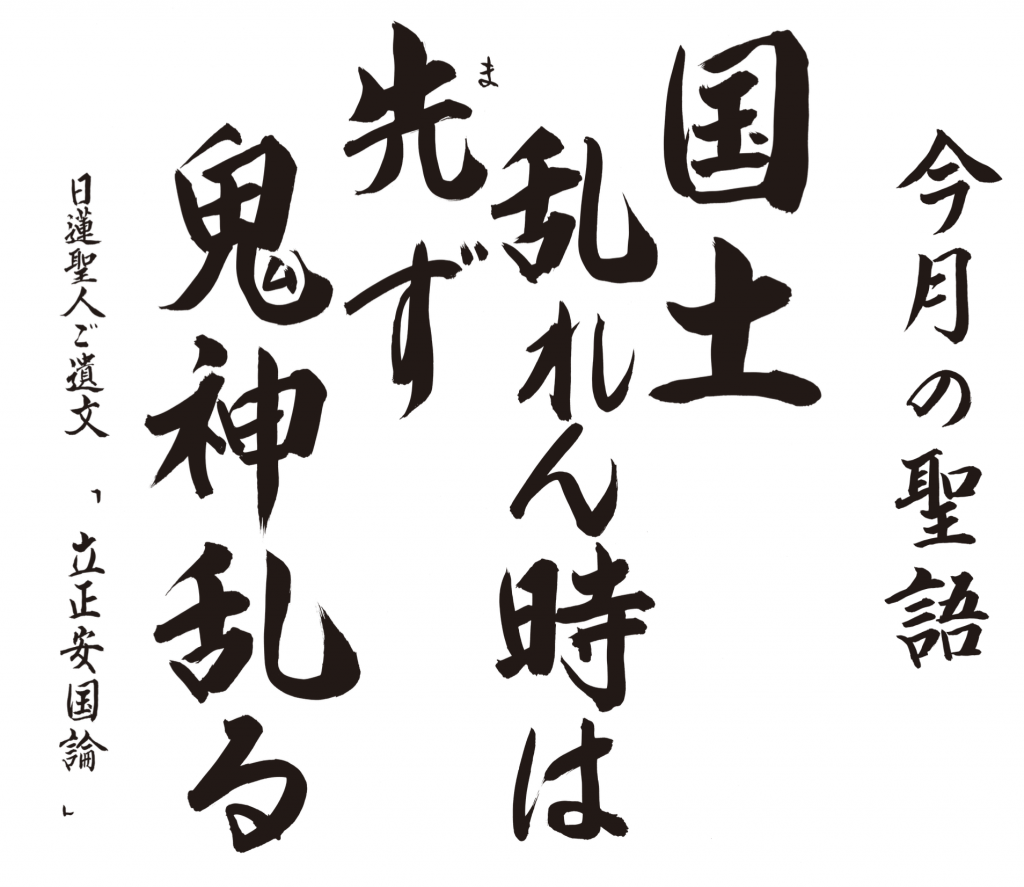 今月の聖語
国土
乱れん時は
先ず
ま
鬼神乱る
日蓮聖人ご遺文 「立正安国論」